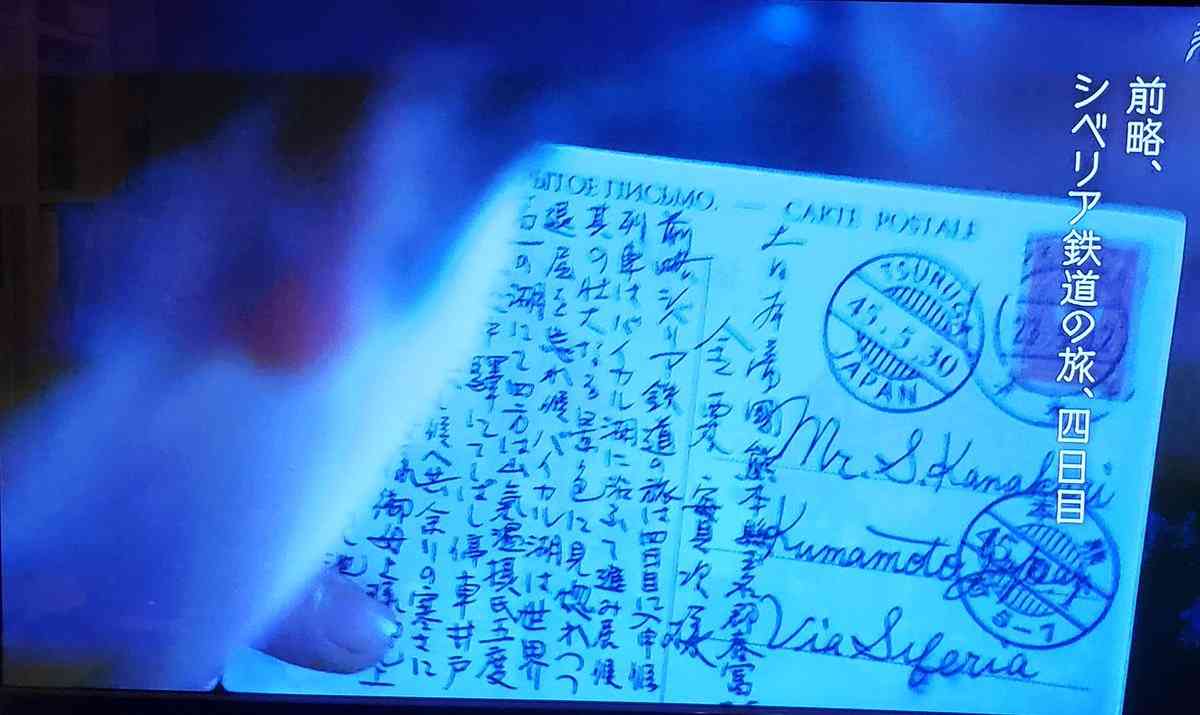 前略、
シベリア鉄道の旅、四日目
ЫТОЕ ПИСЬМО. — CARTE POSTALE
大日本帝國熊本縣玉名郡春富
金栗 實次様
TSURUGA
45.5.30
JAPAN
Mr. S. Kanakuri
Kumamoto Japan
Via Siberia
前略、シベリア鉄道の旅は四日目に入申候
列車はバイカル湖に沿ふて進み居候
其の壮大なる景色に見惚れつつ
退屈を忘れ候 バイカル湖は世界
一の湖にて四方は山氣温摂氏五度
驛にてしばし停車井戸
候へ共余りの寒さに
御母上様